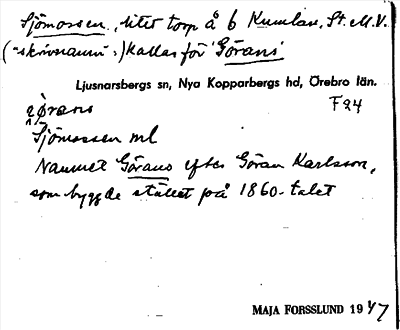 Sjömossen, litet torp å b Kumlan, St. M.V.
("skrivnamn":) kallas för 'Görans'
Ljusnarsbergs sn, Nya Kopparbergs hd, Örebro län.
görans F24
Sjömossen ml
Namnet Görans efter Göran Karlsson,
som byggde stället på 1860-talet
MAJA FORSSLUND 1947